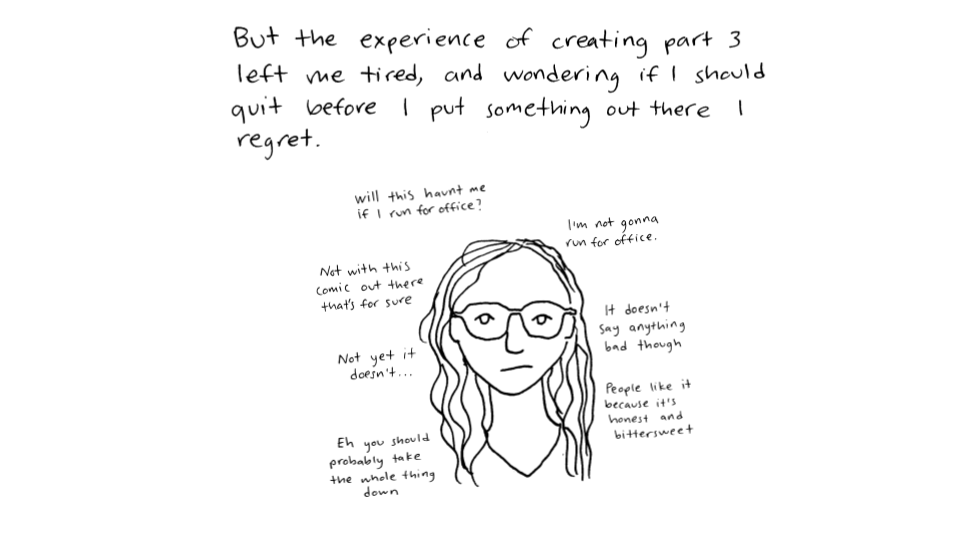 But the experience of creating part 3
left me tired, and wondering if I should
quit before I put something out there I
regret.
Will this haunt me
if I run for office?
I'm not gonna
run for office.
Not with this
comic out there
that's for sure
It doesn't
say anything
bad though
Not yet it
doesn't...
People like it
because it's
honest and
bittersweet
Eh you should
probably take
the whole thing
down